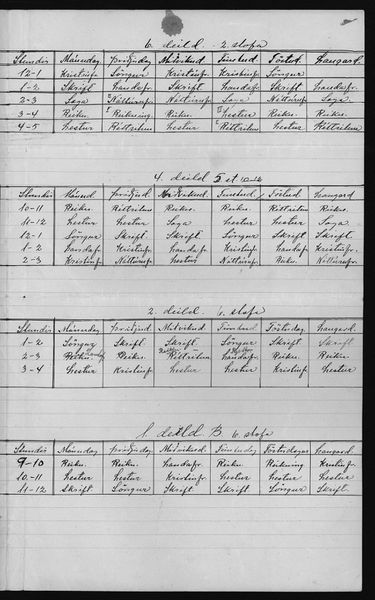 6. deild 2. stofa
Stundir Mánudag þriðjudag Miðvikud Fimtud Föstud Laugard.
12-1 Kristinfr Söngur Kristinfr Kristinfr Söngur
1-2 Skrift handafr. Skrift handafr. Skrift handafr.
2-3 Saga Náttúrufr Náttúrufr Saga Náttúrufr Saga
3-4 Reikn. Reikning Reikn. Lestur Reikn. Reikn.
4-5 Lestur Réttritun Lestur Réttritun Lestur Réttritun
4. deild 5 st
Stundir Mánud þriðjud Miðvikud Fimtud Föstud Laugard
10-11 Reikn. Réttritun Reikn. Reikn. Réttritun Reikn.
11-12 Lestur Lestur Saga Lestur Lestur Saga
12-1 Söngur Skrift. Skrift. Söngur Skrift Skrift.
1-2 Landafr. Kristinfr. Landafr. Kristinfr. Landaf Kristinfr.
2-3 Kristinfr. Náttúrufr. Lestur Náttúrufr. Reikn. Náttúrufr.
2. deild 6. stofa
Stundir Mánudag þriðjud Miðvikud Fimtud Föstudag Laugard.
1-2 Söngur Skrift Skrift. Söngur Skrift. Skrift
2-3 Reikn. Réttritun Landafr. Reikn. Reikn.
3-4 Lestur Kristinfr. Lestur Lestur Kristinfr Lestur
1. deild B. 6. stofa
Stundir Mánudag þriðjudag Miðvikud Fimtudag Föstudagur Laugard.
9-10 Reikn. Reikn. Landafr. Reikn. Reikning Kristinfr.
10-11 Lestur Lestur Kristinfr. Lestur Lestur Lestur
11-12 Skrift. Söngur Skrift. Skrift Söngur Skrift.